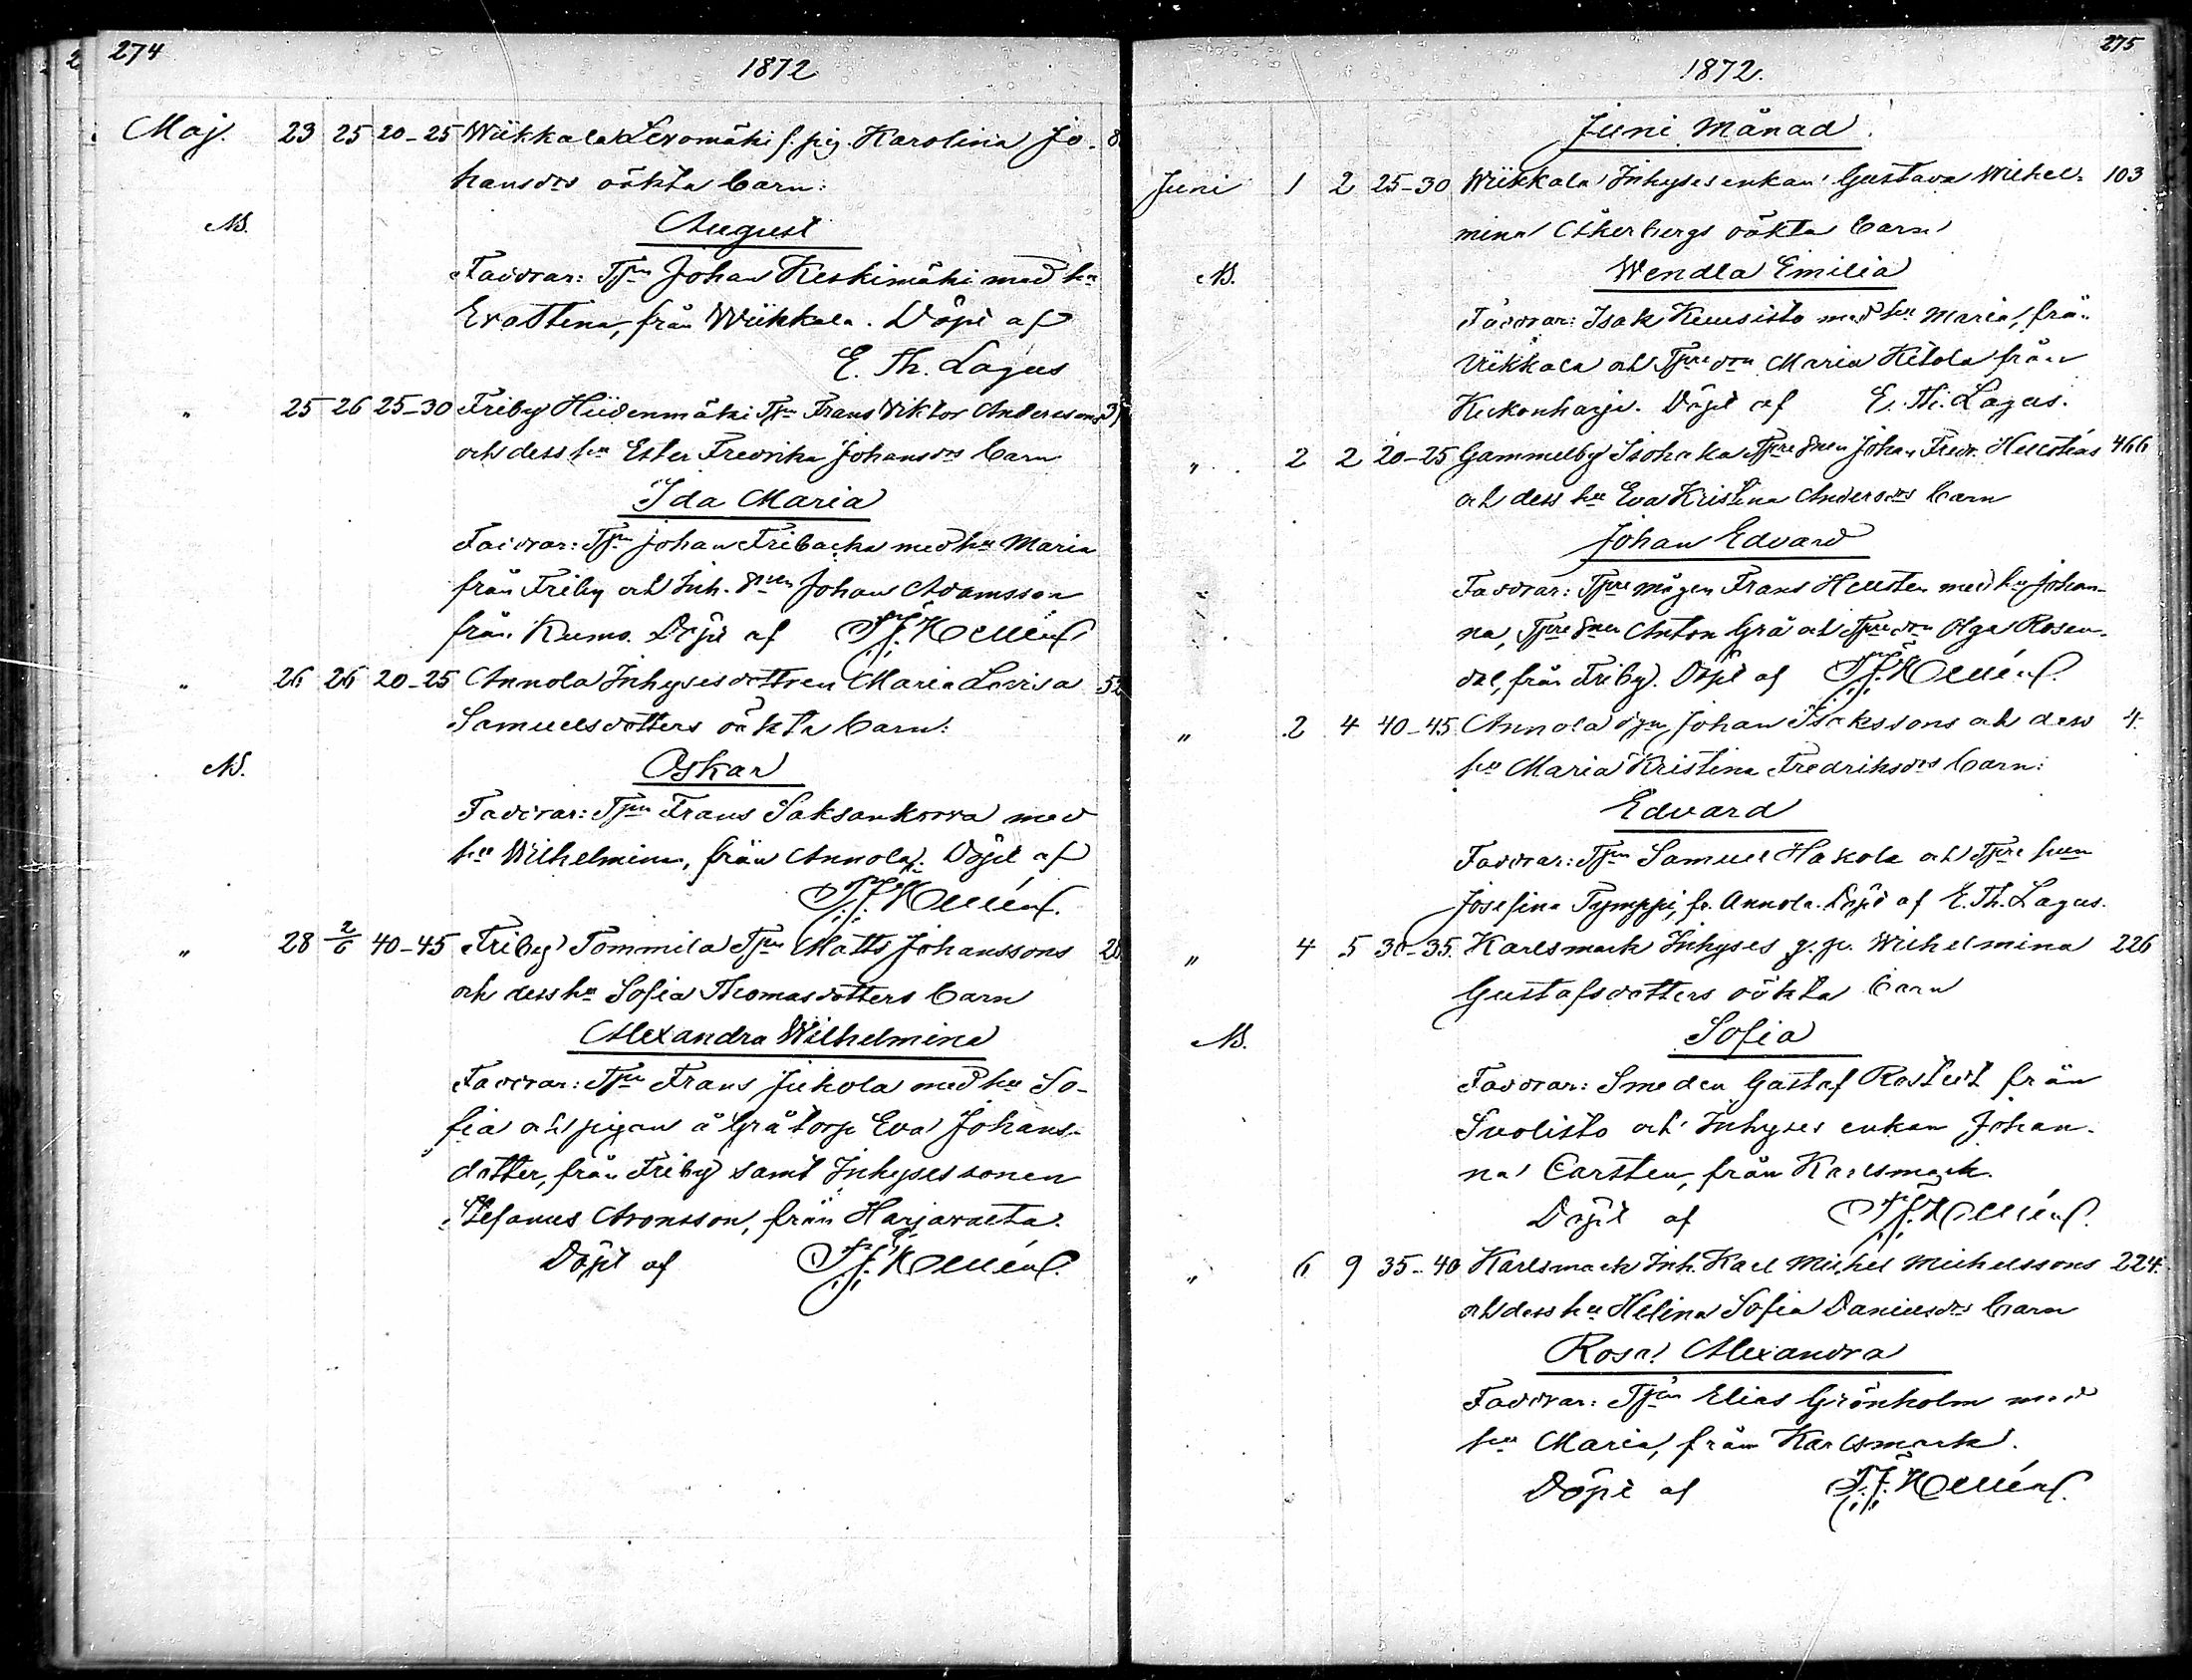 274
1872
Maj. 23 25 20-25 Wiikkala Levomäki f. pig. Karolina Jo- 8
hansdrs oäkta barn:
NB. August
Faddrar: Tjpn Johan Keskimäki med hu
Evastina, från Wiikkala. Döpt af
E. Th. Lagus
" 25 26 25-30 Friby Hiidenmäki Tpn Frans Viktor Anderssons
och dess hu Ester Fredrika Johansdrs barn
Ida Maria
Faddrar: Tpn Johan Fribacka med hu Maria
från Friby och Inh. Johan Adamsson
från Kumo. Döpt af
" 26 26 20-25 Annola Inhysesdottren Maria Lovisa 52
Samuelsdotters oäkta barn:
NB. Oskar
Faddrar: Tpn Frans Saksankorva med
hu Wilhelmina, från Annola. Döpt af
" 28 2/6 40-45 Friby Tommila Tpn Matts Johanssons 28
och dess hu Sofia Thomasdotters barn
Alexandra Wilhelmina
Faddrar: Tpn Frans Jukola med hu So-
fia och pigan å Gråtorp Eva Johans-
dotter, från Friby samt Inhysessonen
Stefanus Aronsson, från Harjavalta.
Döpt af
275
1872.
Juni Månad.
Juni 1 2 25-30 Wiikkala Inhysesenkan Gustava Wilhel- 103
mina Åkerbergs oäkta barn
NB. Wendla Emilia
Faddrar: Isak Kuusisto med hu Maria, från
Viikkala och Tpredon Maria Hitola från
Kukonharja. Döpt af E. Th. Lagus.
" 2 2 20-25 Gammelby Isohaka Johan Fredr. Hellsténs 466
och dess hu Eva Kristina Andersdrs barn
Johan Edvard
Faddrar: Tpre mågen Frans Hellsten med hu Johan-
na, Anton Grå och Olga Rosen-
dal, från Friby. Döpt af
" 2 4 40-45 Annola Johan Isakssons och dess 4.
hu Maria Kristina Fredriksdrs barn:
Edvard
Faddrar: Tpn Samuel Hakola och Tpre hun
Josefina Tymppi, fr. Annola. Döpt af E. Th. Lagus.
" 4 5 30-35. Karlsmark Inhyses g. p. Wilhelmina 226
Gustafsdotters oäkta barn
NB. Sofia
Faddrar: Smeden Gustaf Rostedt från
Suolisto och Inhyses enkan Johan-
na Carsten, från Karlsmark.
Döpt af
" 6 9 35-40 Karlsmark Inh. Karl Michel Michelssons 224.
och dess hu Helina Sofia Danielsdrs barn
Rosa Alexandra
Faddrar: Tpn Elias Grönholm med
hu Maria, från Karlsmark.
Döpt af